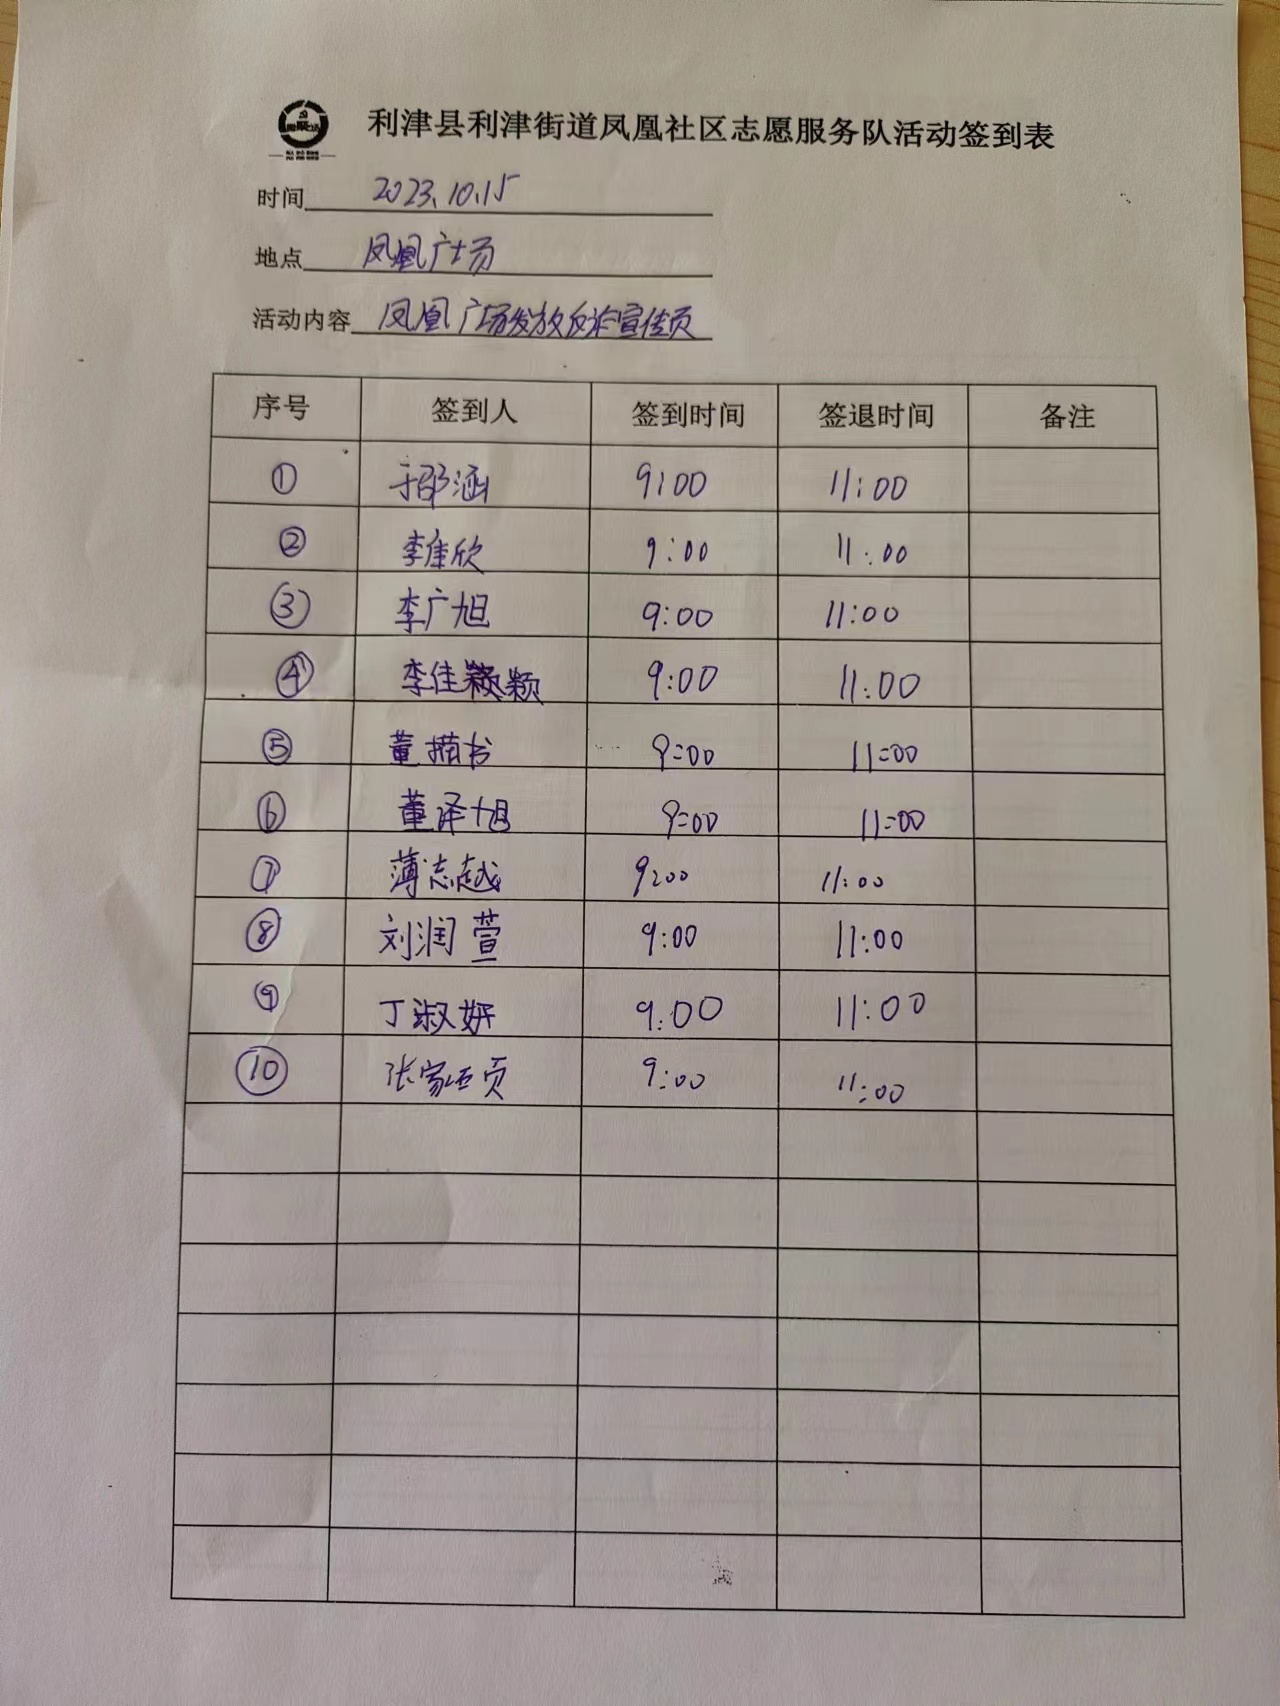 利津县利津街道凤凰社区志愿服务队活动签到表
时间 2023.10.15
地点 凤凰广场
活动内容 凤凰广场发放反诈宣传页
序号 签到人 签到时间 签退时间 备注
① 于邵涵 9:00 11:00
② 李佳欣 9:00 11:00
③ 李广旭 9:00 11:00
④ 李佳颖 9:00 11:00
⑤ 董描书 9:00 11:00
⑥ 董泽旭 9:00 11:00
⑦ 薄志越 9:00 11:00
⑧ 刘润萱 9:00 11:00
⑨ 丁淑妍 9:00 11:00
⑩ 张家 9:00 11:00